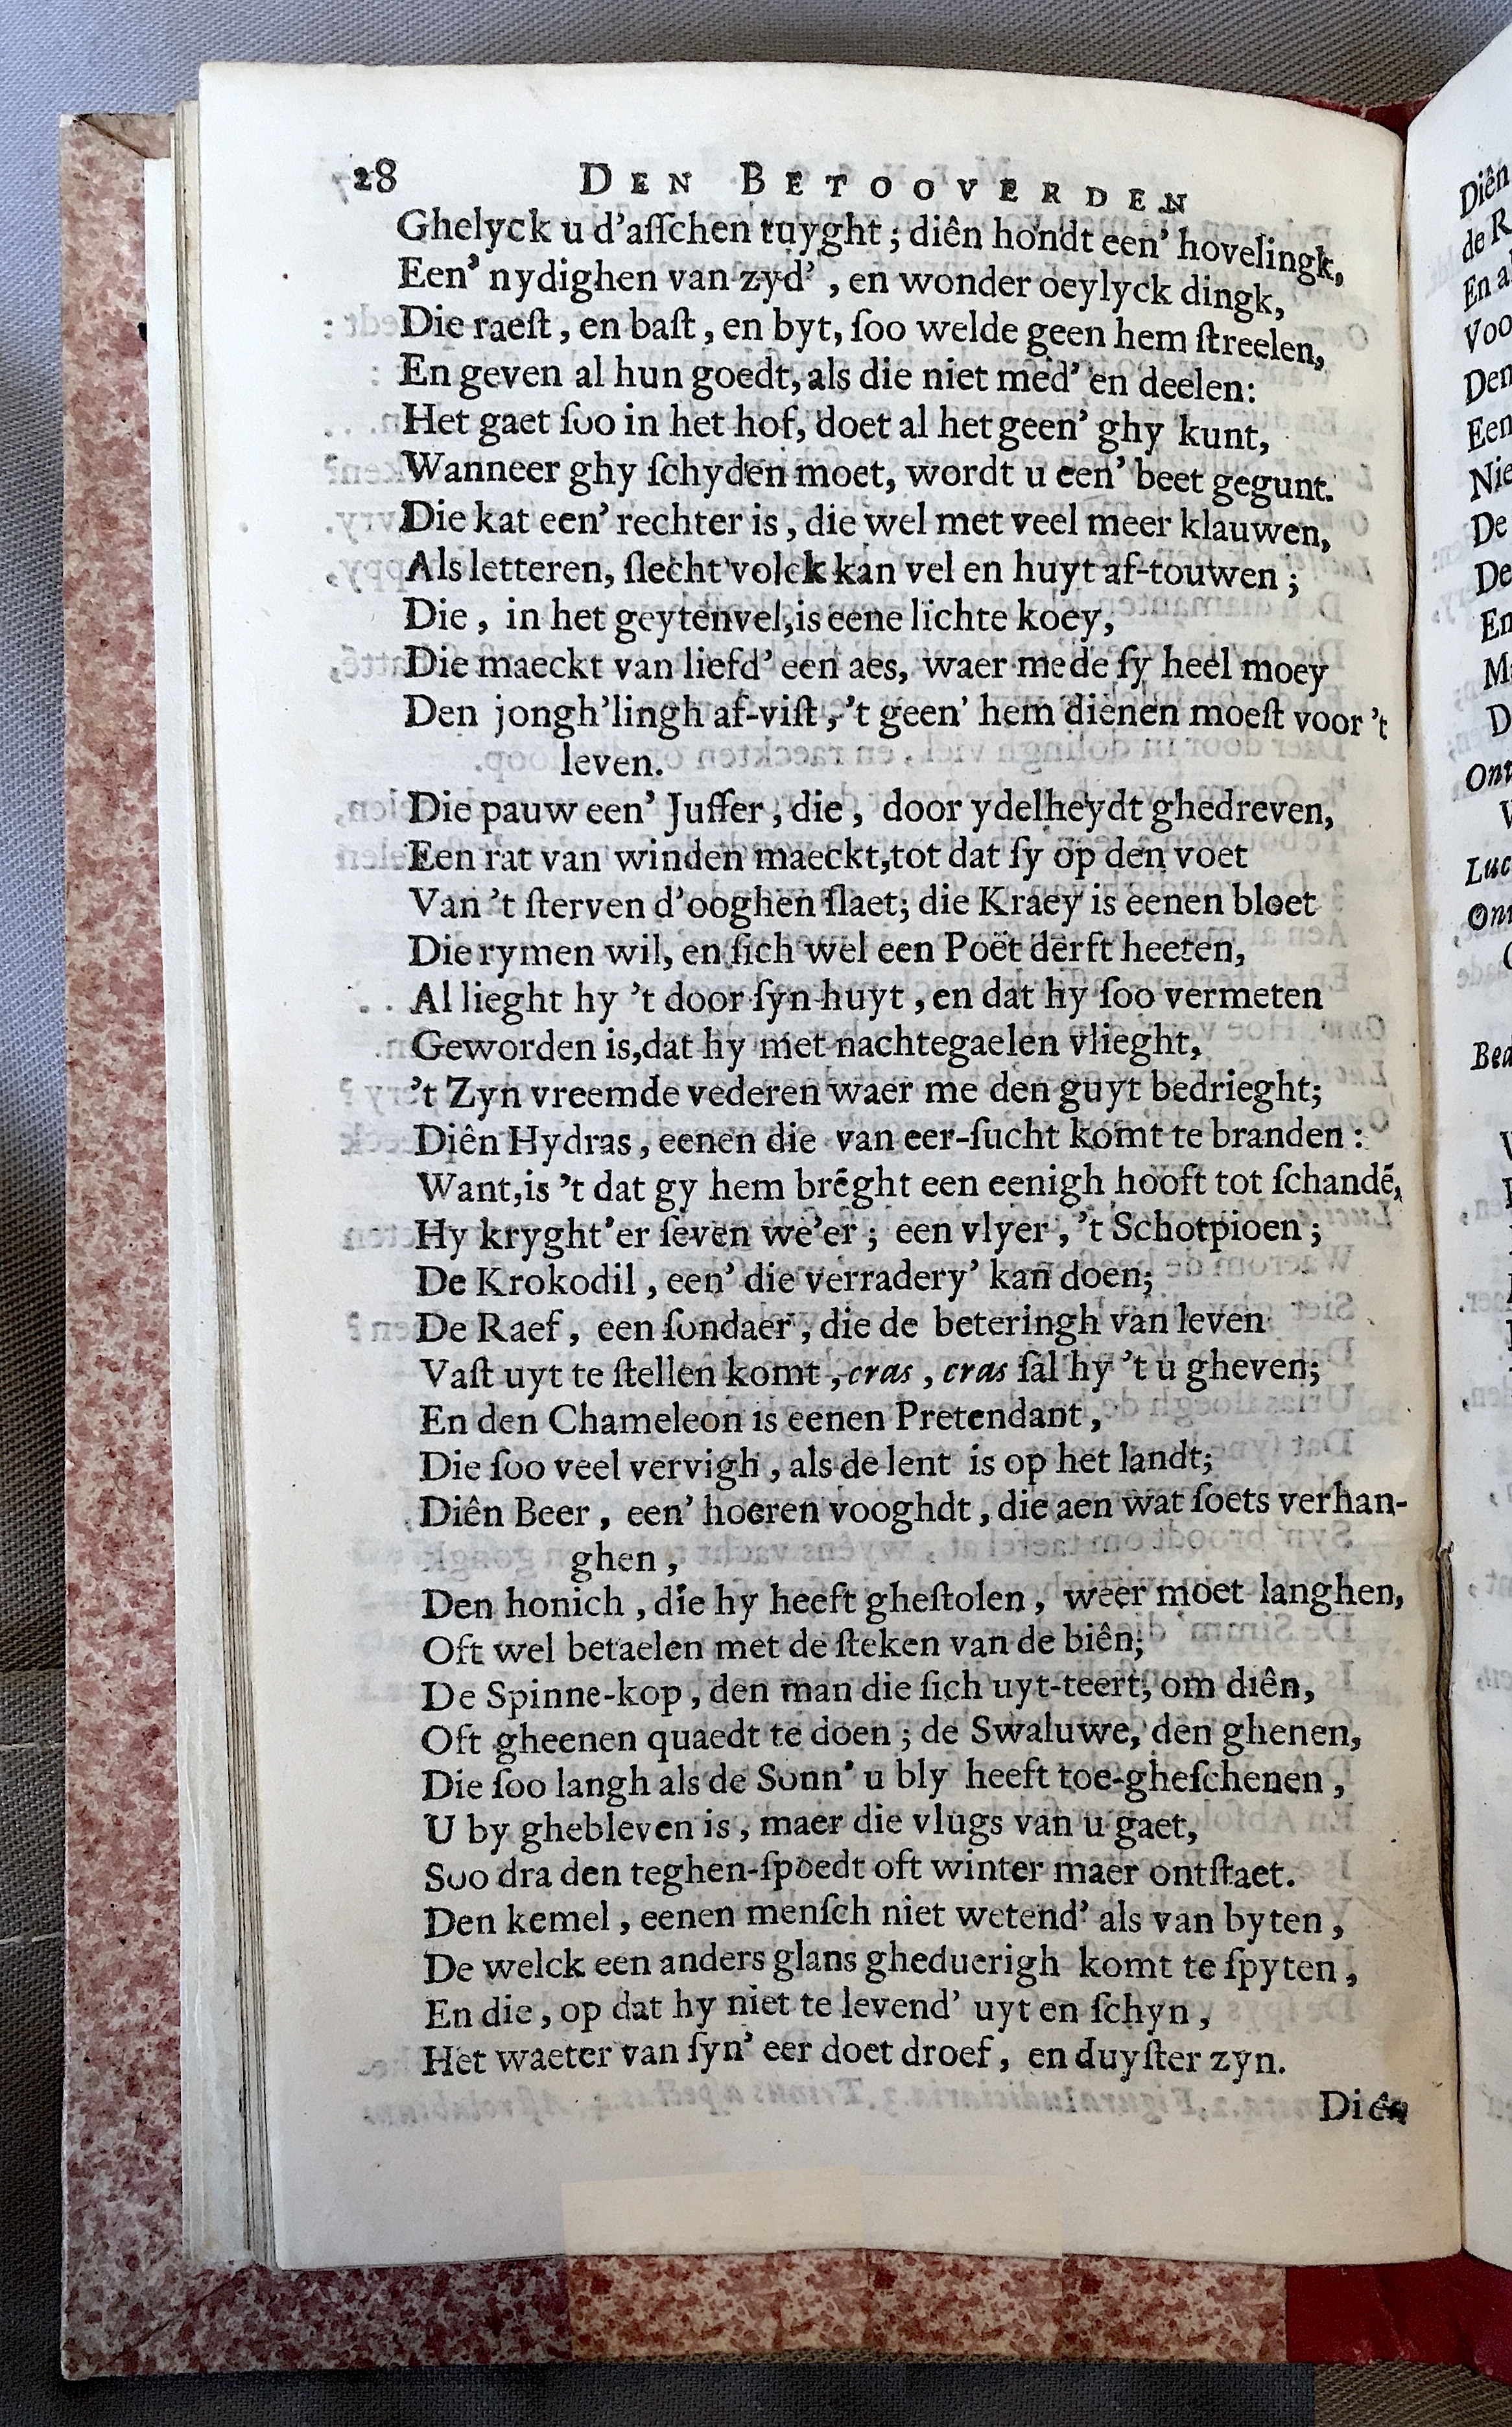 28 DEN BETOOVERDEN
Ghelyck u d'aſſchen tuyght; diên hondt een' hovelingk,
Een' nydighen van zyd', en wonder oeylyck dingk,
Die raeſt, en baſt, en byt, ſoo welde geen hem ſtreelen,
En geven al hun goedt, als die niet med' en deelen:
Het gaet ſoo in het hof, doet al het geen' ghy kunt,
Wanneer ghy ſchyden moet, wordt u een' beet gegunt.
Die kat een' rechter is, die wel met veel meer klauwen,
Als letteren, ſlecht volck kan vel en huyt af-touwen;
Die, in het geytenvel, is eene lichte koey,
Die maeckt van liefd' een aes, waer mede ſy heel moey
Den jongh'lingh af-viſt, 't geen' hem dienen moeſt voor 't
leven.
Die pauw een' Juffer, die, door ydelheydt ghedreven,
Een rat van winden maeckt, tot dat ſy op den voet
Van 't ſterven d'ooghen ſlaet; die Kraey is eenen bloet
Die rymen wil, en ſich wel een Poët derft heeten,
Al lieght hy 't door ſyn huyt, en dat hy ſoo vermeten
Geworden is, dat hy met nachtegaelen vlieght,
't Zyn vreemde vederen waer me den guyt bedrieght;
Diên Hydras, eenen die van eer-ſucht komt te branden:
Want, is 't dat gy hem brēght een eenigh hooft tot ſchandē,
Hy kryght'er ſeven we'er; een vlyer, 't Schotpioen;
De Krokodil, een' die verradery' kan doen;
De Raef, een ſondaer, die de beteringh van leven
Vaſt uyt te ſtellen komt, cras, cras ſal hy 't u gheven;
En den Chameleon is eenen Pretendant,
Die ſoo veel vervigh, als de lent is op het landt;
Diên Beer, een' hoeren vooghdt, die aen wat ſoets verhan-
ghen,
Den honich, die hy heeft gheſtolen, weer moet langhen,
Oft wel betaelen met de ſteken van de biên;
De Spinne-kop, den man die ſich uyt-teert, om diên,
Oft gheenen quaedt te doen; de Swaluwe, den ghenen,
Die ſoo langh als de Sonn' u bly heeft toe-gheſchenen,
U by ghebleven is, maer die vlugs van u gaet,
Soo dra den teghen-ſpoedt oft winter maer ontſtaet.
Den kemel, eenen menſch niet wetend' als van byten,
De welck een anders glans gheduerigh komt te ſpyten,
En die, op dat hy niet te levend' uyt en ſchyn,
Het waeter van ſyn' eer doet droef, en duyſter zyn.
Diên